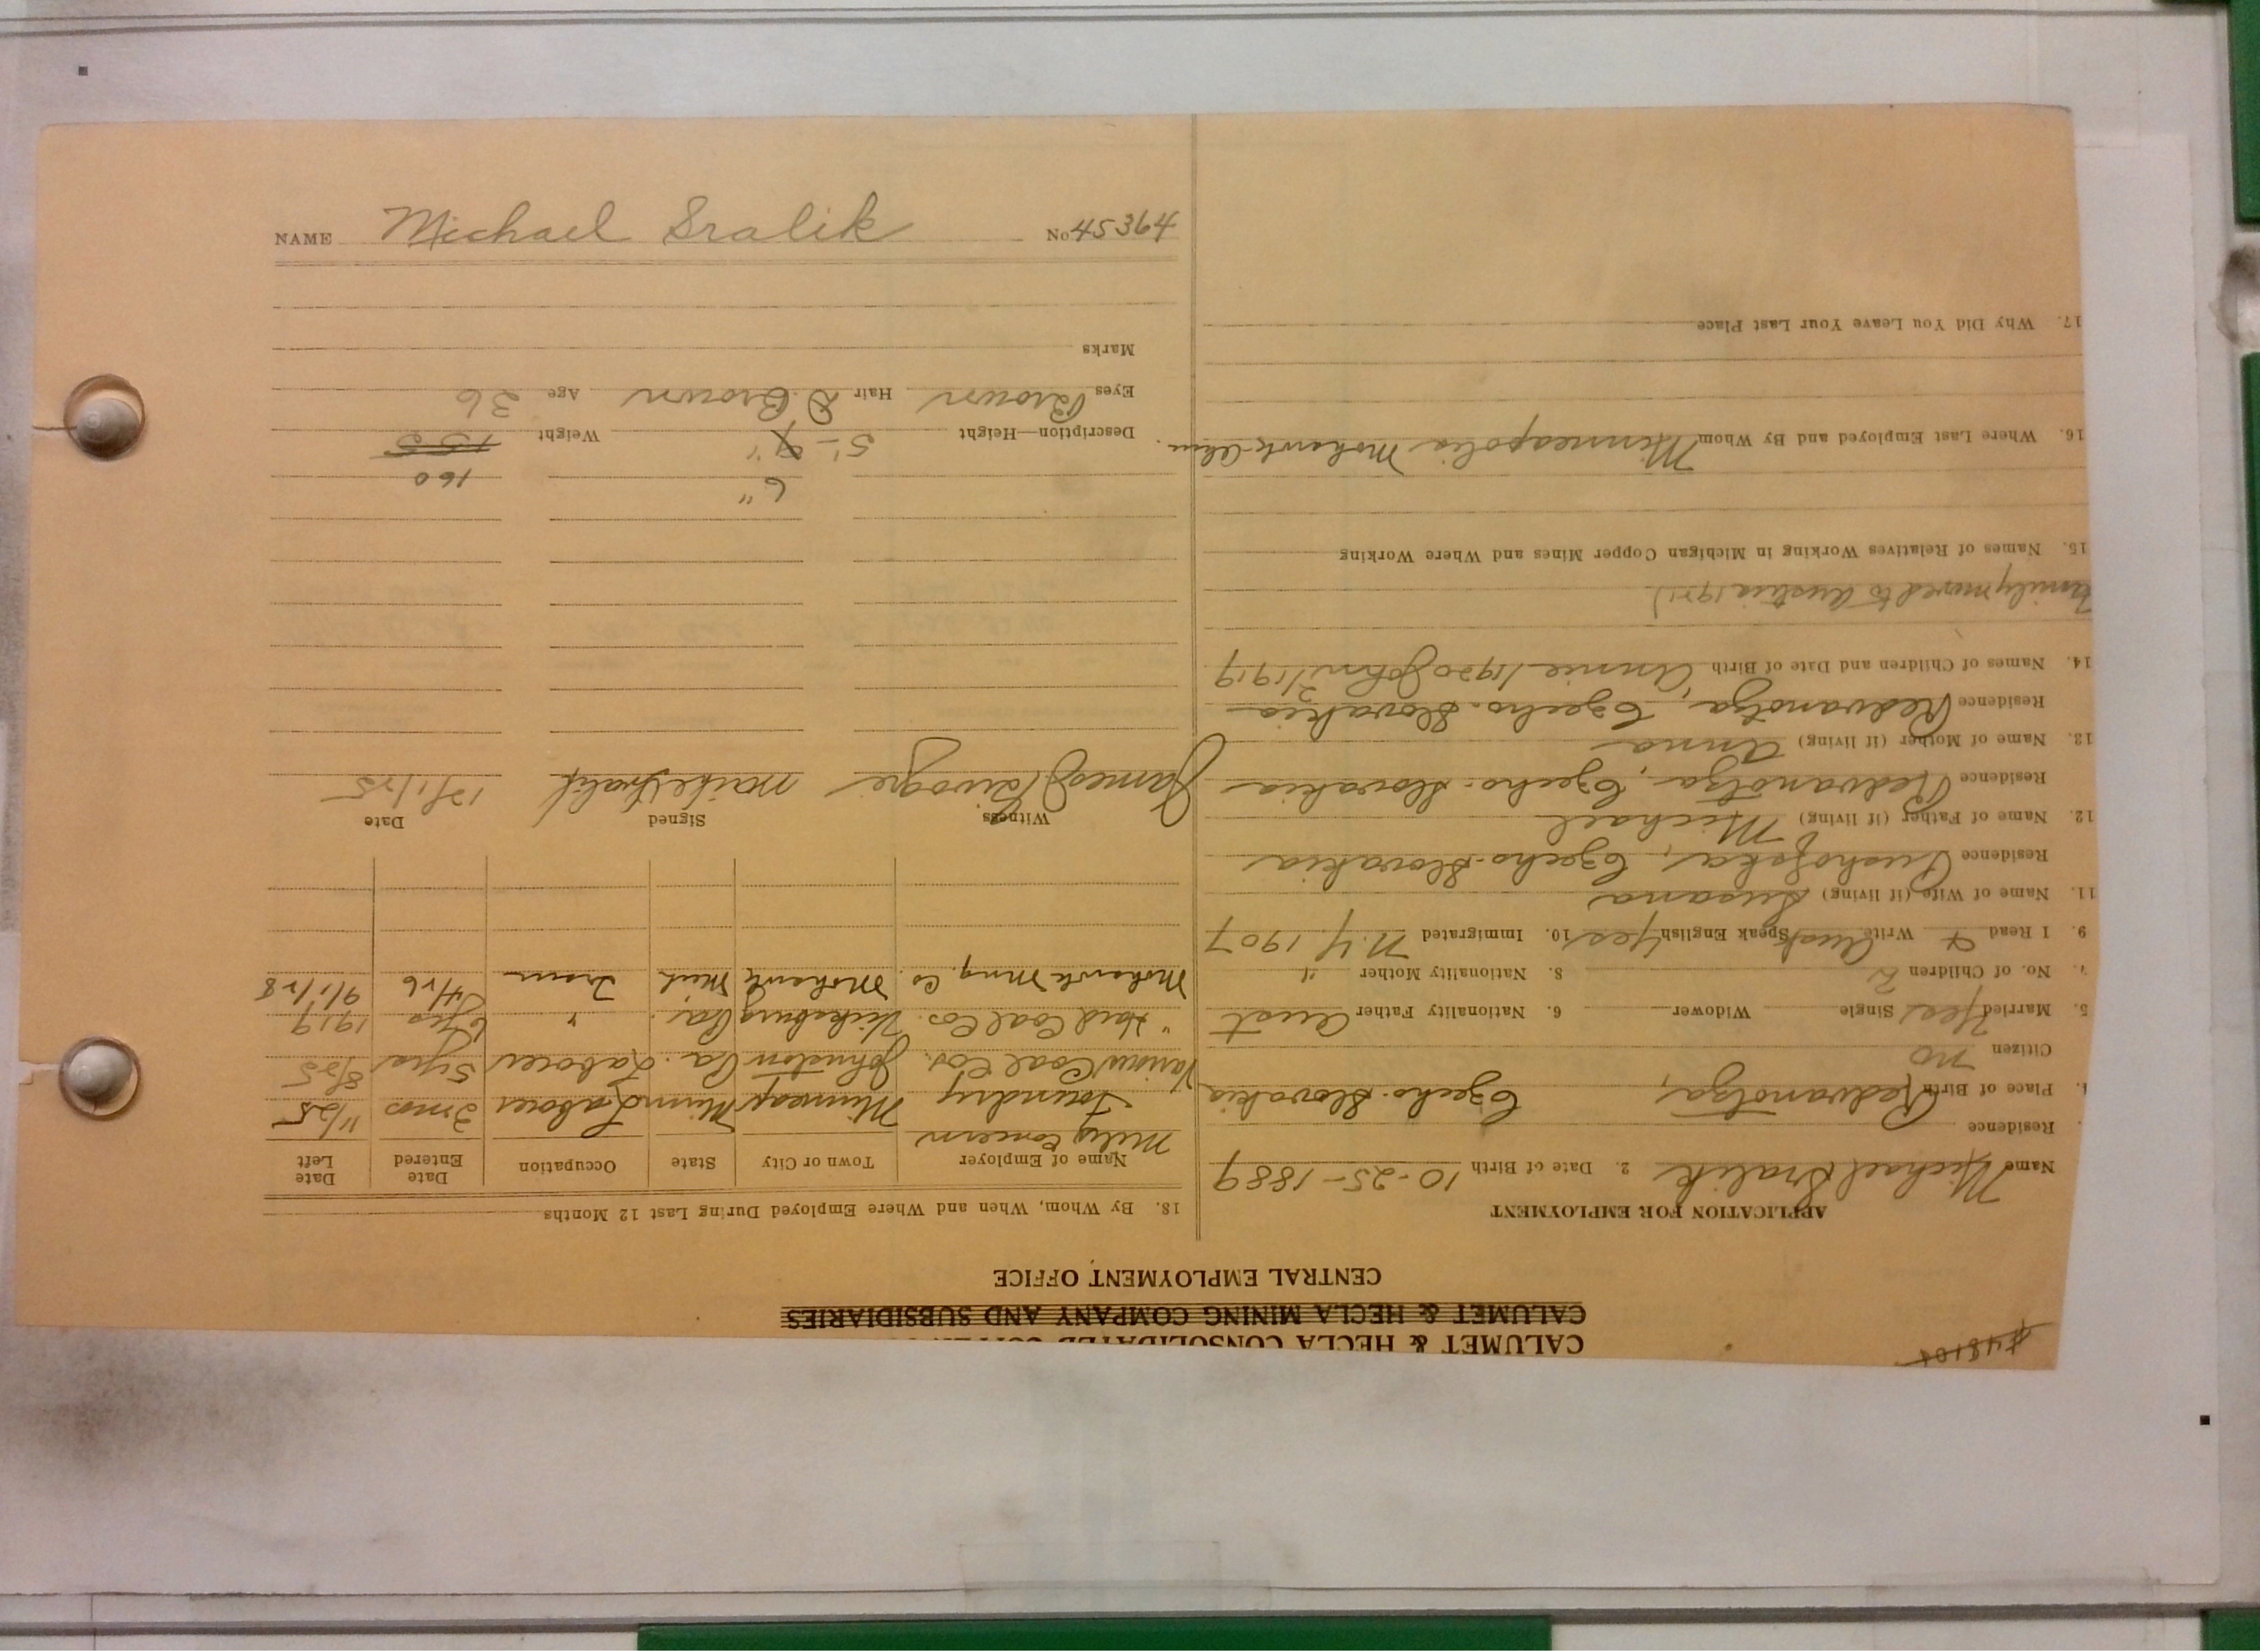 NAME Michael Sralik No 45364
#48108
CALUMET & HECLA CONSOLIDATED
CALUMET & HECLA MINING COMPANY AND SUBSIDIARIES
CENTRAL EMPLOYMENT OFFICE
APPLICATION FOR EMPLOYMENT
Name Michael Sralik 2. Date of Birth 10-25-1889
Residence
Place of Birth Czecho-Slovakia
Citizen no
5. Married Yes Single Widower 6. Nationality Father Aust
No. of Children 2 8. Nationality Mother "
9. I Read Write Aust Speak English Yes 10. Immigrated N.Y. 1907
11. Name of Wife (if living) Susana
Residence Czecho-Slovakia
12. Name of Father (if living) Michael
Residence Czecho-Slovakia
13. Name of Mother (if living) Anna
Residence Czecho-Slovakia
14. Names of Children and Date of Birth Annie, 1920 John 1919
Family moved to Austria 1921)
15. Names of Relatives Working in Michigan Copper Mines and Where Working
16. Where Last Employed and By Whom Minneapolis Mohawk
17. Why Did You Leave Your Last Place
18. By Whom, When and Where Employed During Last 12 Months
Name of Employer Town or City State Occupation Date Entered Date Left
Concern
Foundry Minneap Minn Laborer 3 mos 11/25
Various Coal Cos. Johnston Pa. Laborer 5 yrs 8/25
" Hard Coal Cos. Pa. " 6 yrs 1919
Mohawk Mng. Co. Mohawk Mich Tram 4/26 9/1/28
Witness Signed Date
James Mike Sralik 12/1/25
6" 160
Description—Height 5'-4" Weight 155
Eyes Brown Hair D. Brown Age 36
Marks